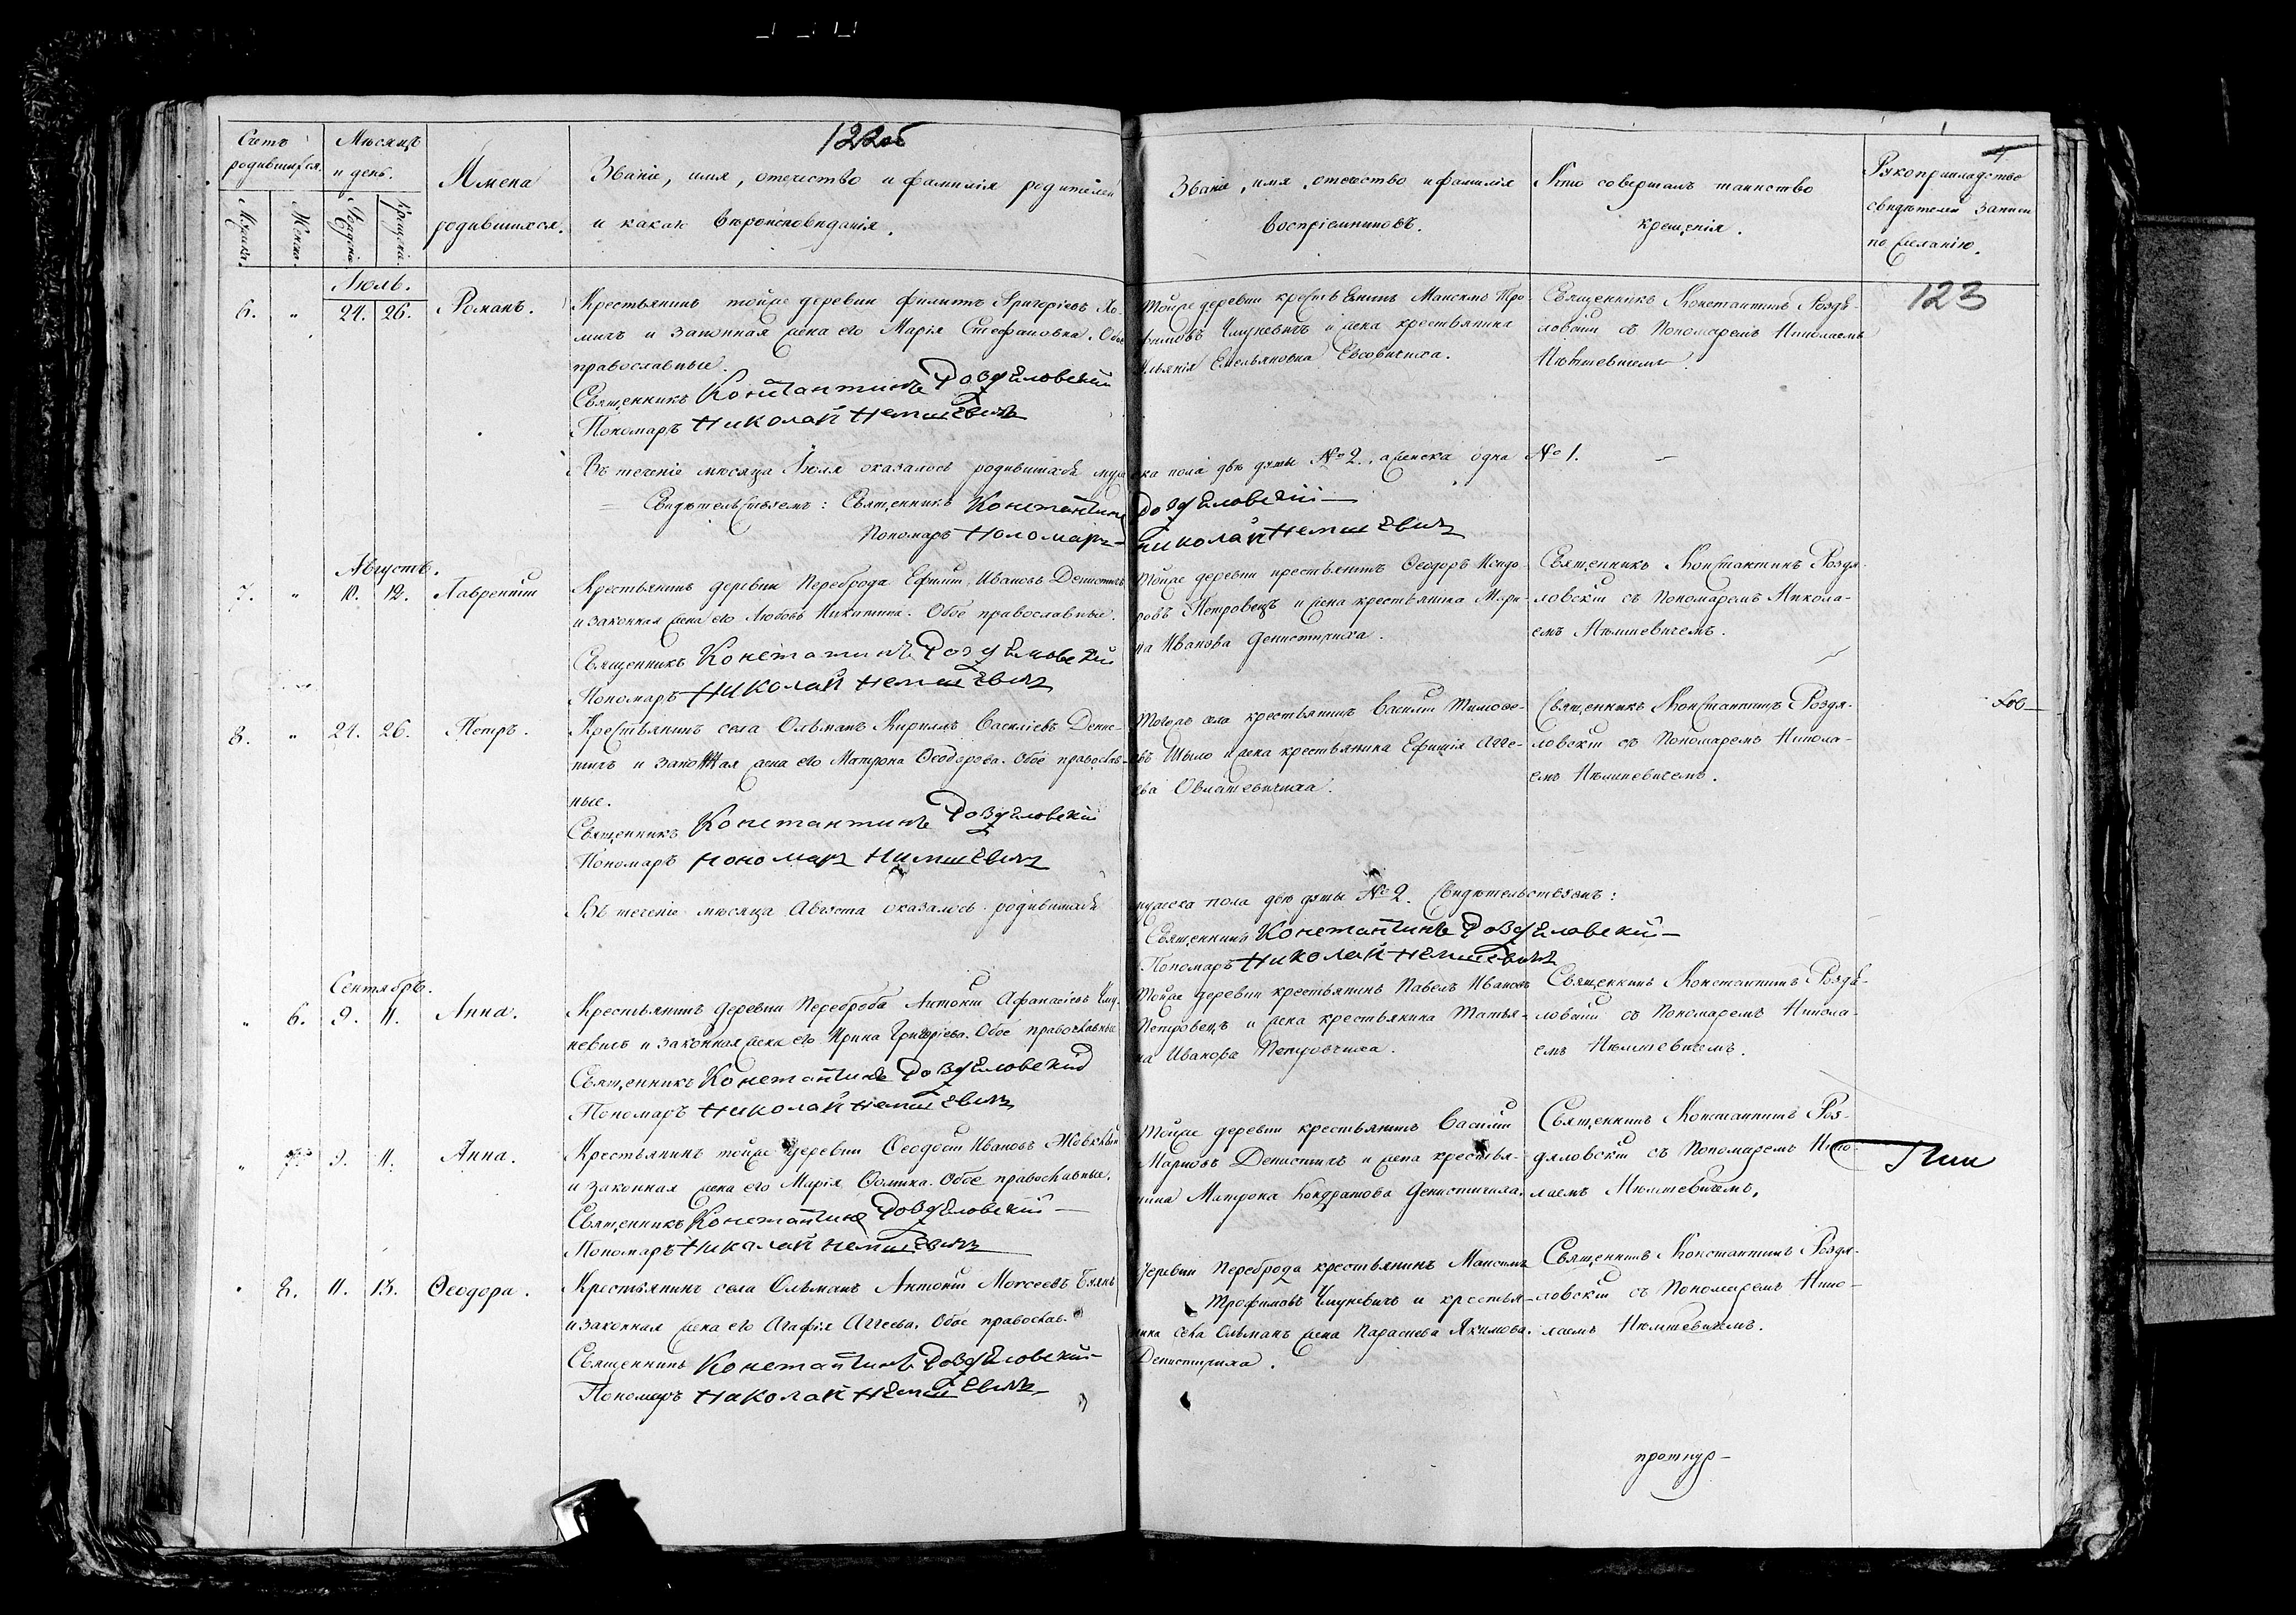 122об
Счетъ родившихся.
Мѣсяцъ и день.
Имена родившихся.
Званіе, имя, отечество и фамилія родителей
и какаго вѣроисповѣданія.
Званіе, имя, отечество и фамилія
воспріемниковъ.
Кто совершалъ таинство
крещенія.
Рукоприкладство
свидѣтелей записи
по желанію.
Мужска.
Женска.
Рожденія.
Крещенія.
123
Іюль.
6. " 24. 26. Романъ.
Крестьянинъ тойже деревни Филипъ Григоріевъ Хо-
мичъ и законная жена его Марія Стефановна. Обое
православные.
Священникъ Константинъ Роздяловскій
Пономарь Николай Немшевичъ
Тойже деревни крестьянинъ Максимъ Тро-
фимовъ Чмуневичъ и жена крестьянина
Ульянія Емельяновна
Священникъ Константинъ Роздѣ-
ловскій съ Пономаремъ Николаемъ
Нѣмшевичемъ.
Въ теченіе мѣсяца Іюля оказалось родившихся мужеска пола двѣ дѣти № 2., а женска одна № 1.
Свидѣтельствуемъ: Священникъ Константинъ Роздѣловскій
Пономарь Пономарь Николай Немшевичъ
Августъ.
7. " 10. 12. Лаврентій
Крестьянинъ деревни Переброда Ефимій Ивановъ Денисчичъ
и законная жена его Любовь Никитина. Обое православные.
Священникъ Константинъ Роздѣловскій
Пономарь Николай Немшевичъ
Тойже деревни крестьянинъ Ѳеодоръ
Петровецъ и жена крестьянина Мари-
на Иванова Денисчичиха.
Священникъ Константинъ Роздя-
ловскій съ Пономаремъ Никола-
емъ Нѣмшевичемъ.
8. " 24. 26. Петръ.
Крестьянинъ села Ольманъ Кириллъ Василіевъ Денис-
чичъ и законная жена его Матрона Ѳеодорова. Обое православ-
ные.
Священникъ Константинъ Роздѣловскій
Пономарь пономарь Нимшевичъ
Тогожъ села крестьянинъ Василій Тимоѳе-
евъ Шыло и жена крестьянина Ефимія Агге-
ева
Священникъ Константинъ Роздя-
ловскій съ Пономаремъ Никола-
емъ Нѣмшевичемъ.
Въ теченіе мѣсяца Августа оказалось родившихся мужеска пола двѣ дѣти № 2. Свидѣтельствуемъ:
Священникъ Константинъ Роздѣловскій
Пономарь Николай Немшевичъ
Сентябрь.
" 6. 9. 11. Анна.
Крестьянинъ деревни Переброда Антоній Афанасіевъ Чму-
невичъ и законная жена его Ирина Григоріева. Обое православные
Священникъ Константинъ Роздѣловскій
Пономарь Николай Немшевичъ
Тойже деревни крестьянинъ Павелъ Ивановъ
Петровецъ и жена крестьянина Татья-
на Иванова Петровчиха.
Священникъ Константинъ Роздѣ-
ловскій съ Пономаремъ Никола-
емъ Нѣмшевичемъ.
" 7. 9. 11. Анна.
Крестьянинъ тойже деревни Ѳеодосій Ивановъ
и законная жена его Марія Ѳомина. Обое православные.
Священникъ Константинъ Роздѣловскій
Пономарь Николай Немшевичъ
Тойже деревни крестьянинъ Василій
Марковъ Денисчичъ и жена крестья-
нина Матрона Кондратова Денисчичиха.
Священникъ Константинъ Роз-
дяловскій съ Пономаремъ Нико-
лаемъ Нѣмшевичемъ.
" 8. 11. 13. Ѳеодора.
Крестьянинъ села Ольманъ Антоній Моѵсеевъ
и законная жена его Агафія Аггеева. Обое православ.
Священникъ Константинъ Роздѣловскій
Пономарь Николай Немшевичъ
Деревни Переброда крестьянинъ Максимъ
Трофимовъ Чмуневичъ и крестья-
нина села Ольманъ жена Параскева Якимова
Денисчичиха.
Священникъ Константинъ Роздя-
ловскій съ Пономаремъ Нико-
лаемъ Нѣмшевичемъ.